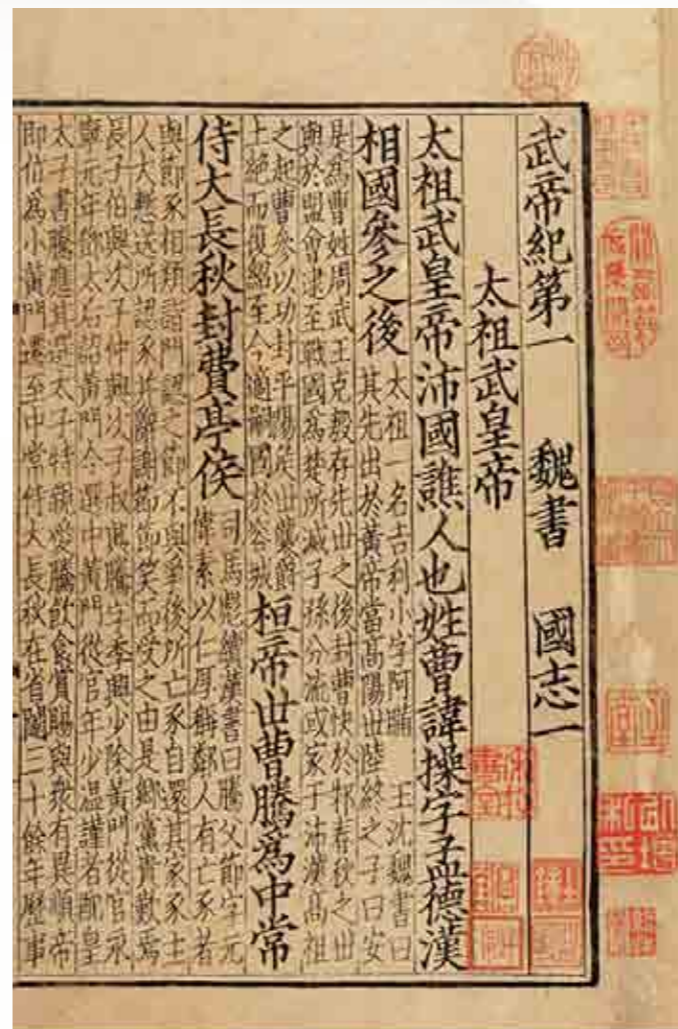 武帝紀第一 魏書 國志一
太祖武皇帝
太祖武皇帝沛國譙人也姓曹諱操字孟德漢
相國參之後
太祖一名吉利小字阿瞞 王沈魏書曰
其先出於黃帝當高陽世陸終之子曰安
是爲曹姓周武王克殷存先世之後封曹俠於邾春秋之世
與於盟會逮至戰國爲楚所滅子孫分流或家于沛漢高祖
之起曹參以功封平陽侯世襲爵
土絕而復紹至今適嗣國於容城
桓帝世曹騰爲中常
侍大長秋封費亭侯
司馬彪續漢書曰騰父節字元
偉素以仁厚稱鄰人有亡豕者
與節豕相類詣門認之節不與爭後所亡豕自還其家豕主
人大慙送所認豕并辭謝節節笑而受之由是鄉黨貴歎焉
長子伯興次子仲興次子叔興騰字季興少除黃門從官永
寧元年鄧太后詔黃門令選中黃門從官年少温謹者配皇
太子書騰應其選太子特親愛騰飲食賞賜與衆有異順帝
即位爲小黃門遷至中常侍大長秋在省闥三十餘年歷事